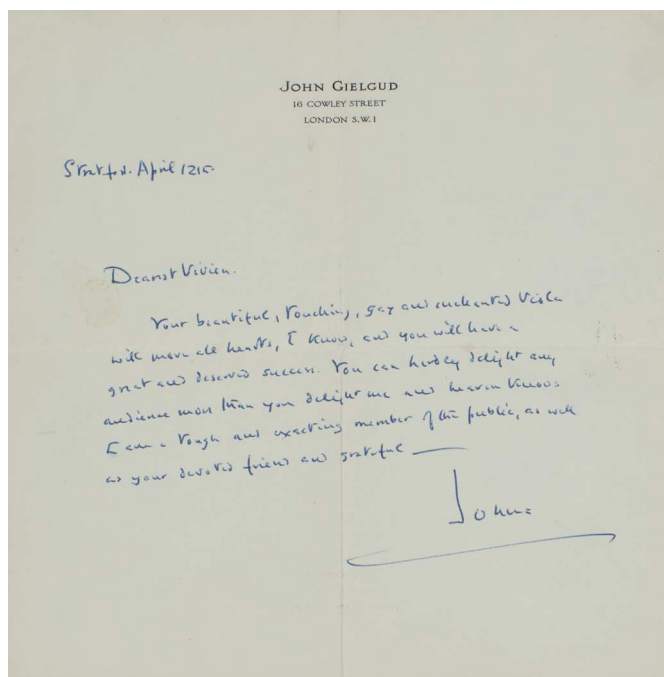 JOHN GIELGUD
16 COWLEY STREET
LONDON S.W.1
Stratford. April 12th.
Dearest Vivien.
Your beautiful, touching, gay and enchanted Viola
will move all hearts, I know, and you will have a
great and deserved success. You can hardly delight any
audience more than you delight me and heaven knows
I am a tough and exacting member of the public, as well
as your devoted friend and grateful —
John.